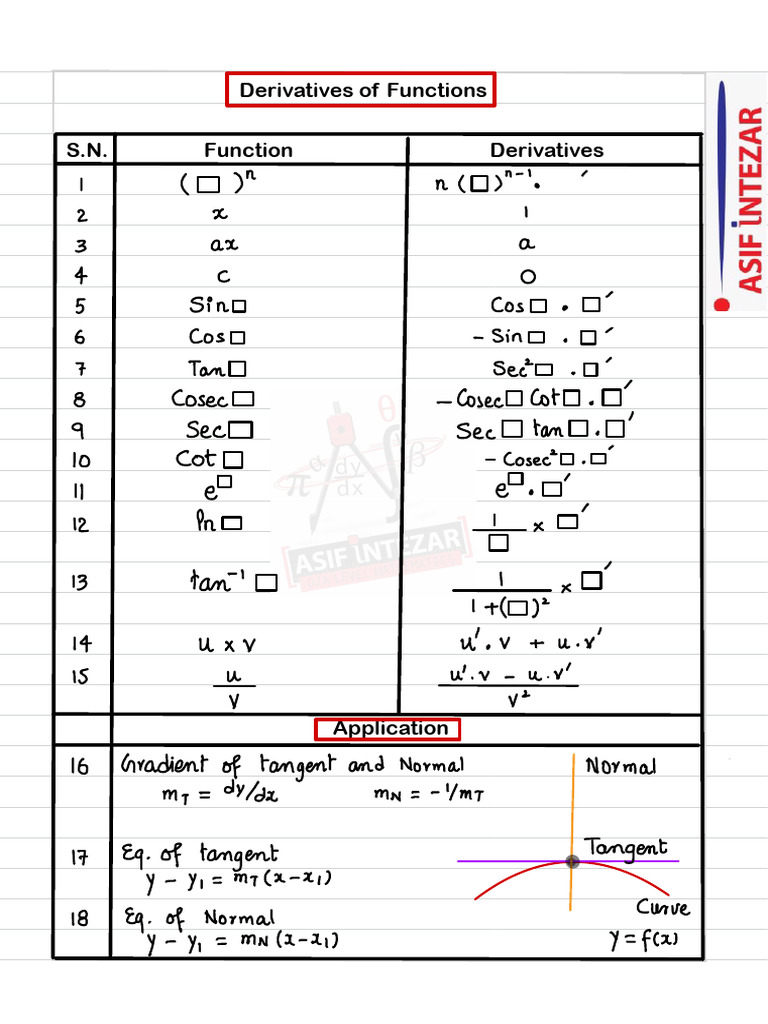 Derivatives of Functions
ASIF INTEZAR
S.N. Function Derivatives
1 (□)ⁿ n(□)ⁿ⁻¹. ′
2 x 1
3 ax a
4 c 0
5 Sin□ Cos□ . □′
6 Cos□ - Sin□ . □′
7 Tan□ Sec²□ . □′
8 Cosec□ - Cosec□ Cot□ . □′
9 Sec□ Sec□ tan□ . □′
10 Cot□ - Cosec²□ . □′
11 e^□ e^□ . □′
12 ln□ 1/□ × □′
13 tan⁻¹□ 1/(1+(□)²) × □′
π α dy/dx θ β
ASIF INTEZAR
14 u × v u′.v + u.v′
15 u/v (u′.v - u.v′)/v²
Application
16 Gradient of tangent and Normal
m_T = dy/dx m_N = -1/m_T
Normal
17 Eq. of tangent
y - y₁ = m_T(x-x₁)
Tangent
18 Eq. of Normal
y - y₁ = m_N(x-x₁)
Curve
y = f(x)